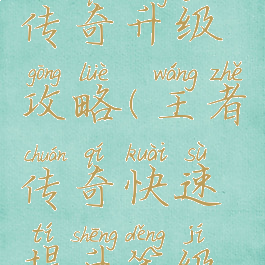 传奇升级
gōng lüè wáng zhě
攻略(王者
chuán qí kuài sù
传奇快速
tí shēng děng jí
提升等级